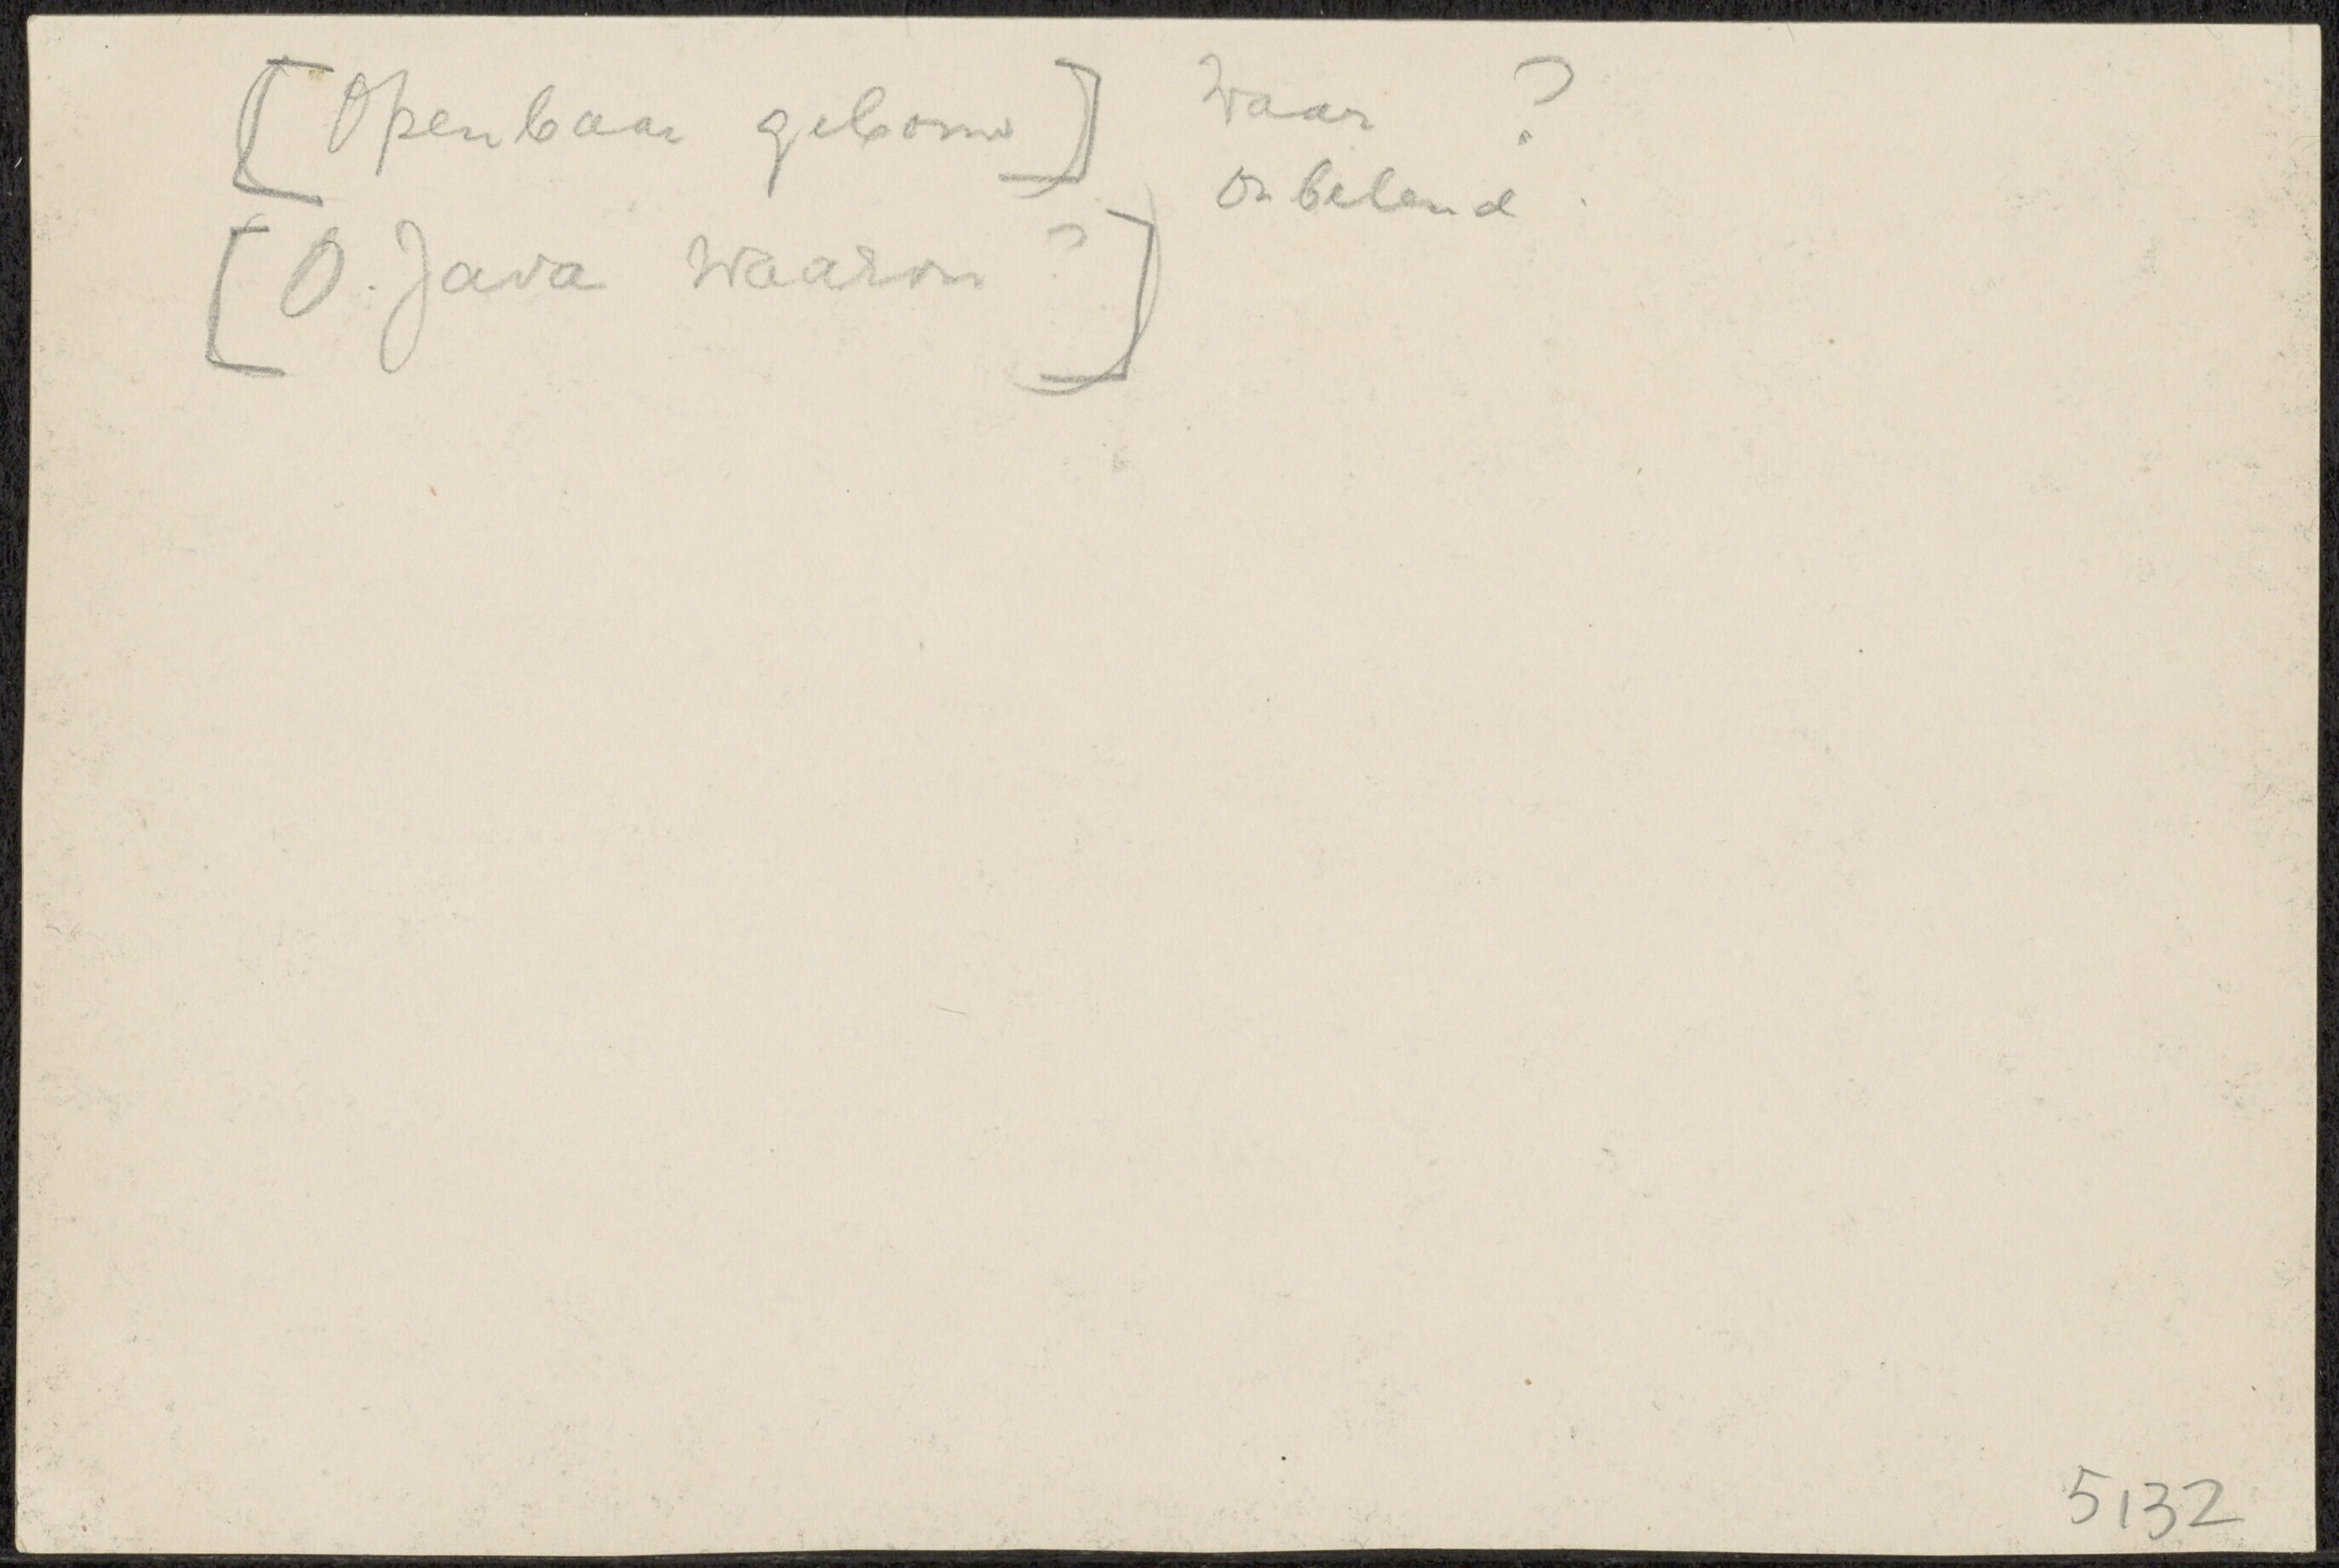 [Openbaar gebouw] Waar ?
Onbekend.
[O. Java Waarom ?]
5132